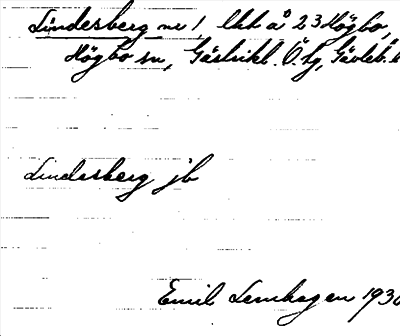 Lindesberg nr 1, lht å 23 Högbo,
Högbo sn, Gästrikl. Ö. tg, Gävleb. l
Lindesberg jb
Emil Lenhagen 1930